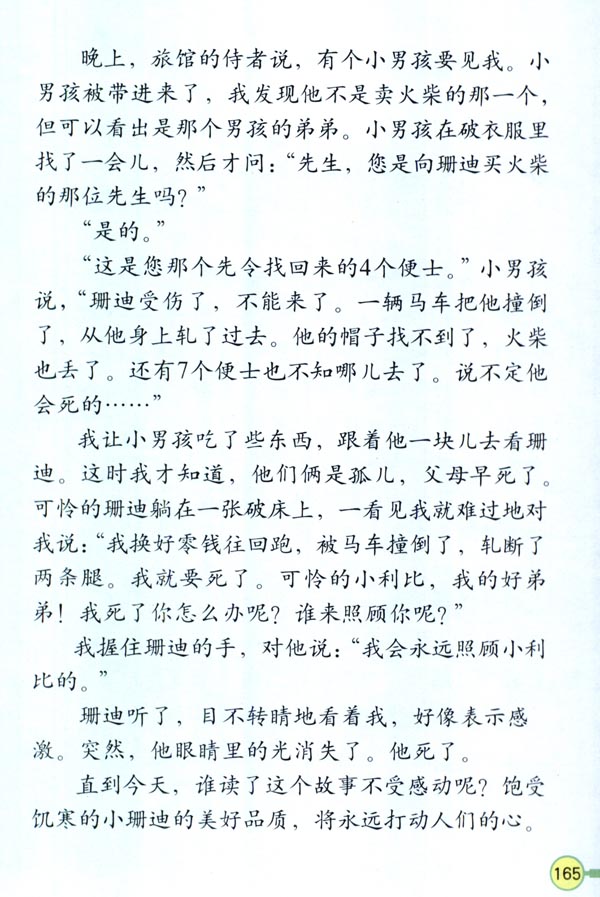 晚上，旅馆的侍者说，有个小男孩要见我。小
男孩被带进来了，我发现他不是卖火柴的那一个，
但可以看出是那个男孩的弟弟。小男孩在破衣服里
找了一会儿，然后才问：“先生，您是向珊迪买火柴
的那位先生吗？”
“是的。”
“这是您那个先令找回来的4个便士。”小男孩
说，“珊迪受伤了，不能来了。一辆马车把他撞倒
了，从他身上轧了过去。他的帽子找不到了，火柴
也丢了。还有7个便士也不知哪儿去了。说不定他
会死的……”
我让小男孩吃了些东西，跟着他一块儿去看珊
迪。这时我才知道，他们俩是孤儿，父母早死了。
可怜的珊迪躺在一张破床上，一看见我就难过地对
我说：“我换好零钱往回跑，被马车撞倒了，轧断了
两条腿。我就要死了。可怜的小利比，我的好弟
弟！我死了你怎么办呢？谁来照顾你呢？”
我握住珊迪的手，对他说：“我会永远照顾小利
比的。”
珊迪听了，目不转睛地看着我，好像表示感
激。突然，他眼睛里的光消失了。他死了。
直到今天，谁读了这个故事不受感动呢？饱受
饥寒的小珊迪的美好品质，将永远打动人们的心。
165